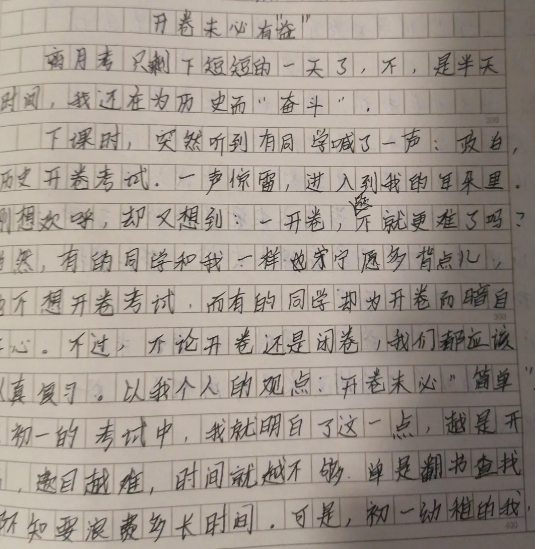 开卷未必有"益"
离月考只剩下短短的一天了，不，是半天
时间，我还在为历史而"奋斗"．
下课时，突然听到有同学喊了一声：政自，
历史开卷考试．一声惊雷，进入到我的耳朵里．
刚想欢呼，却又想到：一开卷，不就更难了吗？
当然，有的同学和我一样也宁愿多背点儿，
也不想开卷考试．而有的同学却为开卷而暗自
心。不过，不论开卷还是闭卷，我们都应该
认真复习。以我个人的观点：开卷未必"简单"
初一的考试中，我就明白了这一点，越是开
，题目越难，时间就越不够．单是翻书查找
不知要浪费多长时间．可是，初一幼稚的我，